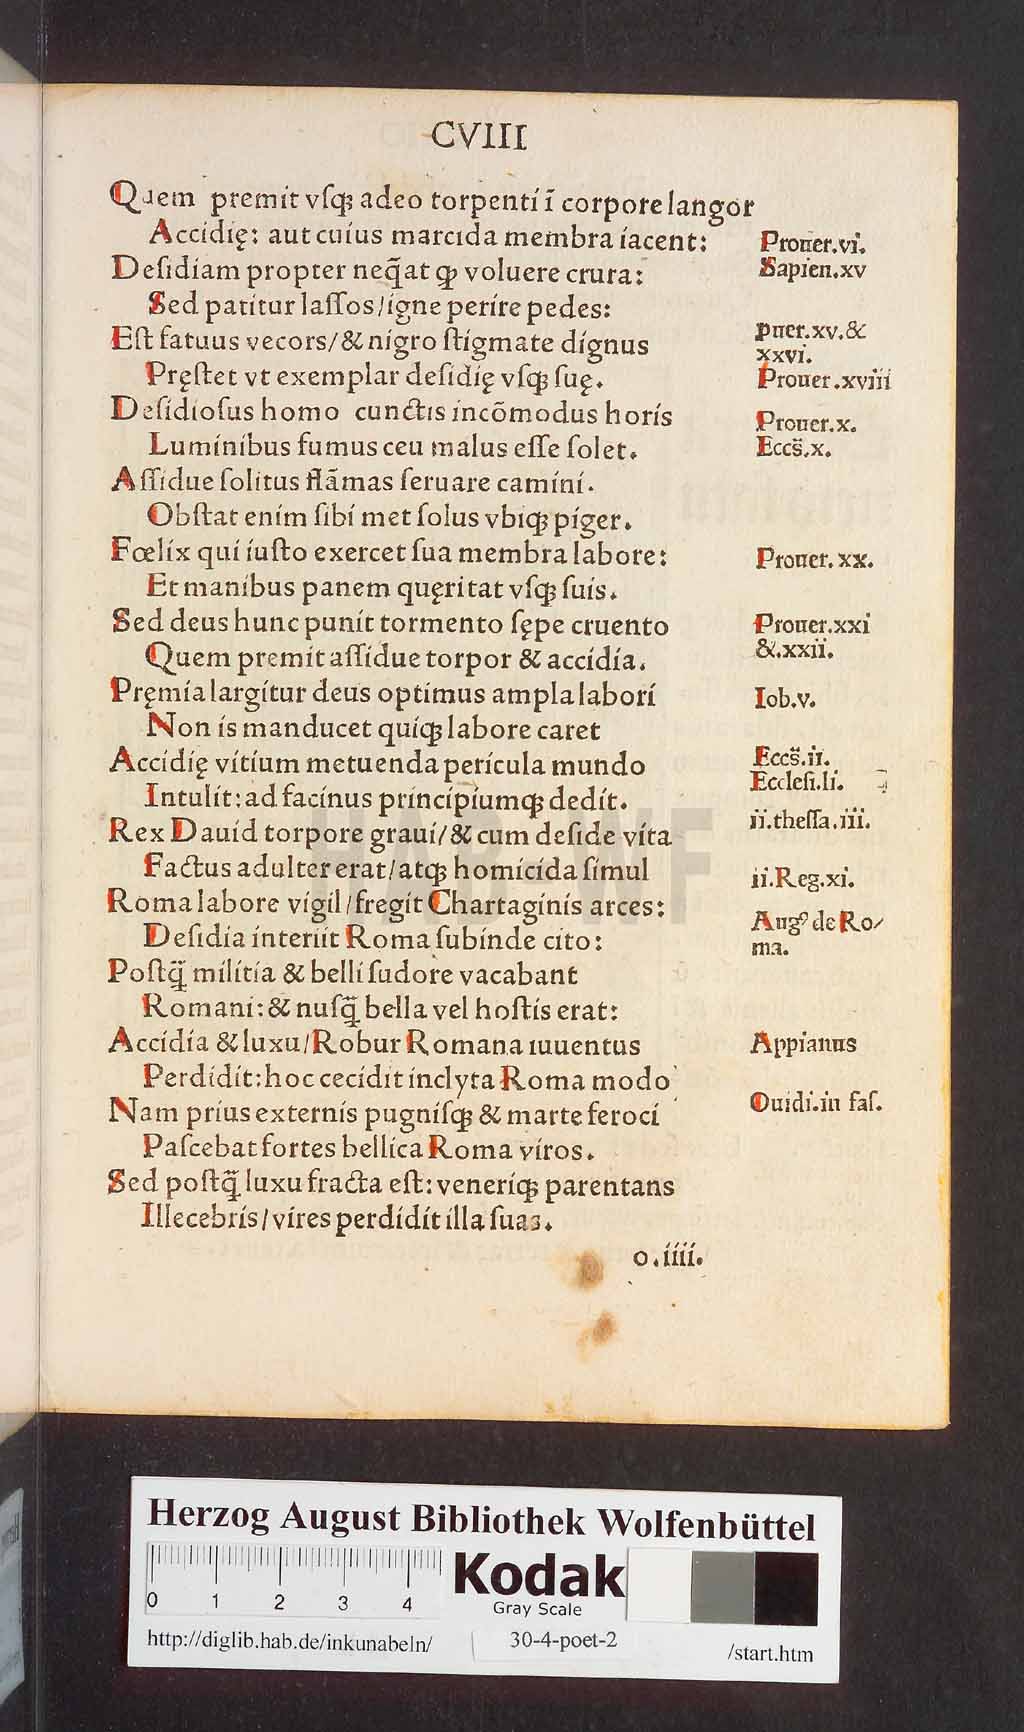 CVIII
Quem premit vſqꝫ adeo torpenti ī corpore langor
Accidię: aut cuius marcida membra iacent:
Proner.vi.
Deſidiam propter neq̄at ꝙ voluere crura:
Sapien.xv
Sed patitur laſſos/igne perire pedes:
Eſt fatuus vecors/& nigro ſtigmate dignus
puer.xv.&
xxvi.
Pręſtet vt exemplar deſidię vſqꝫ ſuę.
Proner.xviii
Deſidioſus homo cunctis incōmodus horis
Proner.x.
Luminibus fumus ceu malus eſſe ſolet.
Eccs̄.x.
Aſſidue ſolitus flāmas ſeruare camini.
Obſtat enim ſibi met ſolus vbiqꝫ piger.
Fœlix qui iuſto exercet ſua membra labore:
Proner. xx.
Et manibus panem quęritat vſqꝫ ſuis.
Sed deus hunc punit tormento ſępe cruento
Proner.xxi
&.xxii.
Quem premit aſſidue torpor & accidia.
Pręmia largitur deus optimus ampla labori
Iob.v.
Non is manducet quiqꝫ labore caret
Accidię vitium metuenda pericula mundo
Eccs̄.ii.
Eccleſi.li.
Intulit: ad facinus principiumqꝫ dedit.
Rex Dauid torpore graui/& cum deſide vita
ii.theſſa.iii.
Factus adulter erat/atqꝫ homicida ſimul
ii.Reg.xi.
Roma labore vigil/fregit Chartaginis arces:
Augꝰ de Ro/
ma.
Deſidia interiit Roma ſubinde cito:
Poſtq̄ militia & belli ſudore vacabant
Romani: & nuſq̄ bella vel hoſtis erat:
Accidia & luxu/Robur Romana iuuentus
Appianus
Perdidit: hoc cecidit inclyta Roma modo
Nam prius externis pugniſqꝫ & marte feroci
Ouidi.in faſ.
Paſcebat fortes bellica Roma viros.
Sed poſtq̄ luxu fracta eſt: veneriqꝫ parentans
Illecebris/vires perdidit illa ſuas.
o.iiii.
HAB-WF
Herzog August Bibliothek Wolfenbüttel
0 1 2 3 4
Kodak
Gray Scale
http://diglib.hab.de/inkunabeln/
30-4-poet-2
/start.htm